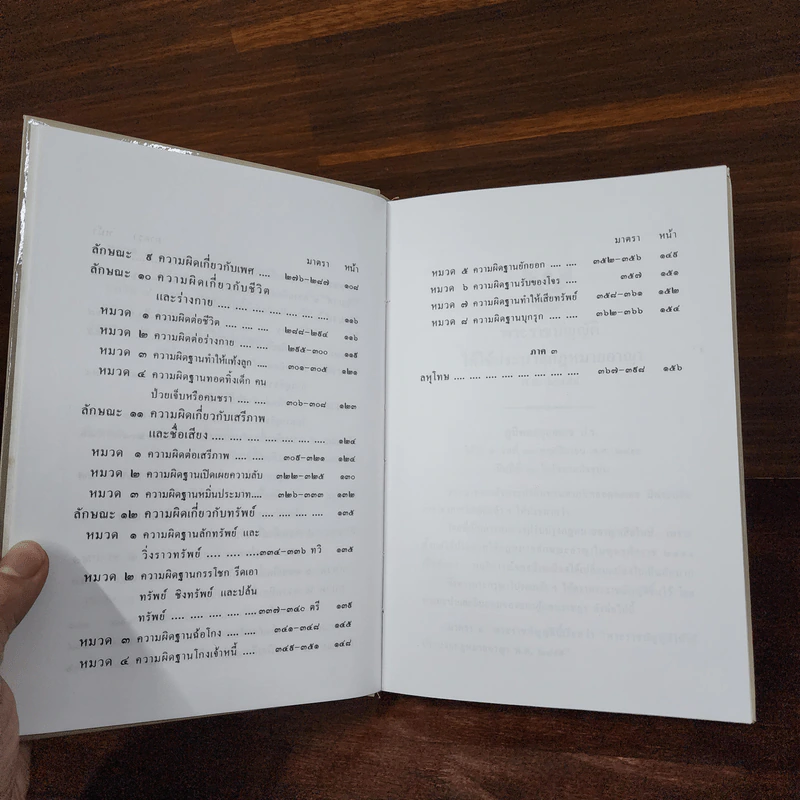 มาตรา หน้า
ลักษณะ ๙ ความผิดเกี่ยวกับเพศ .... ๒๗๖-๒๘๗ ๑๐๘
ลักษณะ ๑๐ ความผิดเกี่ยวกับชีวิต
และร่างกาย .... .... .... .... .... .... .... ๑๑๖
หมวด ๑ ความผิดต่อชีวิต .... .... ๒๘๘-๒๙๔ ๑๑๖
หมวด ๒ ความผิดต่อร่างกาย .... ๒๙๕-๓๐๐ ๑๑๙
หมวด ๓ ความผิดฐานทำให้แท้งลูก .... ๓๐๑-๓๐๕ ๑๒๑
หมวด ๔ ความผิดฐานทอดทิ้งเด็ก คน
ป่วยเจ็บหรือคนชรา .... ๓๐๖-๓๐๘ ๑๒๓
ลักษณะ ๑๑ ความผิดเกี่ยวกับเสรีภาพ
และชื่อเสียง .... .... .... .... .... .... .... ๑๒๔
หมวด ๑ ความผิดต่อเสรีภาพ .... ๓๐๙-๓๒๑ ๑๒๔
หมวด ๒ ความผิดฐานเปิดเผยความลับ ๓๒๒-๓๒๕ ๑๓๐
หมวด ๓ ความผิดฐานหมิ่นประมาท.... ๓๒๖-๓๓๓ ๑๓๒
ลักษณะ ๑๒ ความผิดเกี่ยวกับทรัพย์ .... .... .... .... ๑๓๕
หมวด ๑ ความผิดฐานลักทรัพย์ และ
วิ่งราวทรัพย์ .... .... ....๓๓๔-๓๓๖ ทวิ ๑๓๕
หมวด ๒ ความผิดฐานกรรโชก รีดเอา
ทรัพย์ ชิงทรัพย์ และปล้น
ทรัพย์ .... .... .... .... ๓๓๗-๓๔๐ ตรี ๑๓๙
หมวด ๓ ความผิดฐานฉ้อโกง .... .... ๓๔๑-๓๔๘ ๑๔๕
หมวด ๔ ความผิดฐานโกงเจ้าหนี้ .... ๓๔๙-๓๕๑ ๑๔๘
มาตรา หน้า
หมวด ๕ ความผิดฐานยักยอก .... .... ๓๕๒-๓๕๖ ๑๔๙
หมวด ๖ ความผิดฐานรับของโจร .... ๓๕๗ ๑๕๑
หมวด ๗ ความผิดฐานทำให้เสียทรัพย์ ๓๕๘-๓๖๑ ๑๕๒
หมวด ๘ ความผิดฐานบุกรุก .... .... ๓๖๒-๓๖๖ ๑๕๔
ภาค ๓
ลหุโทษ .... .... .... .... .... .... .... .... ๓๖๗-๓๙๘ ๑๕๖